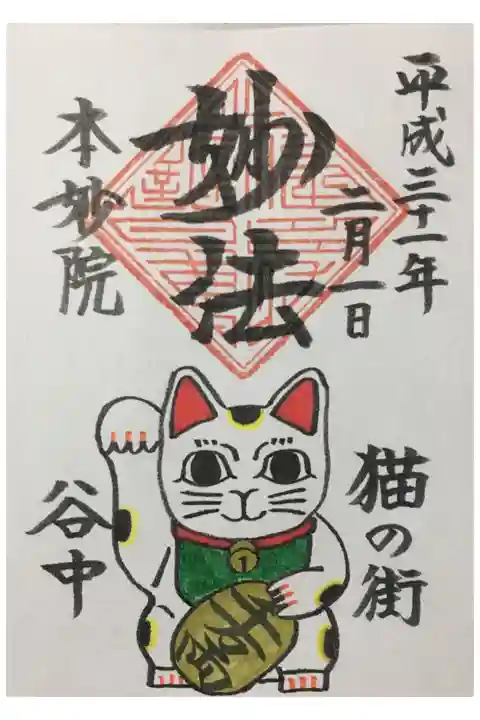 平成三十一年
二月一日
妙法
本妙院
猫の街
谷中
1